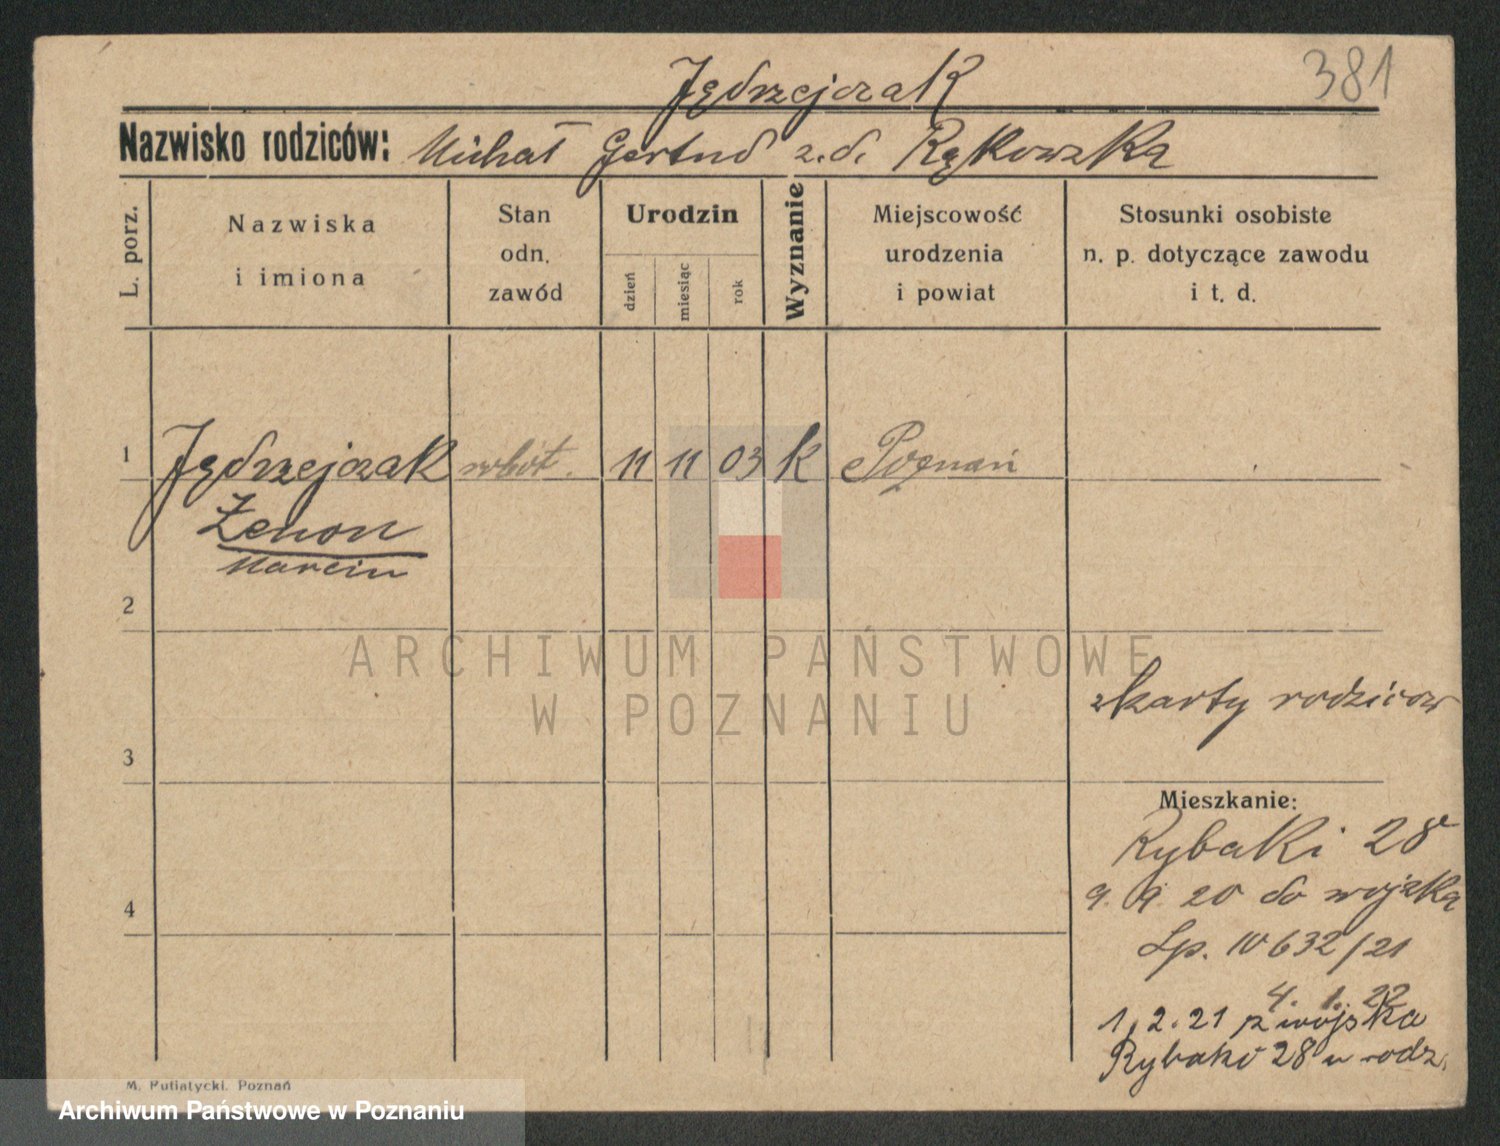 381
Jędrzejczak
Nazwisko rodziców: Michał Gertrud z.d. Rąkowska
L. porz.
Nazwiska
i imiona
Stan
odn.
zawód
Urodzin
dzień
miesiąc
rok
Wyznanie
Miejscowość
urodzenia
i powiat
Stosunki osobiste
n. p. dotyczące zawodu
i t. d.
1 Jędrzejczak robot. 11 11 03 k Poznań
Zenon
Marcin
2
ARCHIWUM PAŃSTWOWE
W POZNANIU
z karty rodziców
3
Mieszkanie:
Rybaki 28
9. 9. 20 do wojska
4
Lp. 10632/21
4. 1. 22
1. 2. 21 z wojska
Rybaki 28 u rodz.
M. Putiatycki. Poznań
Archiwum Państwowe w Poznaniu